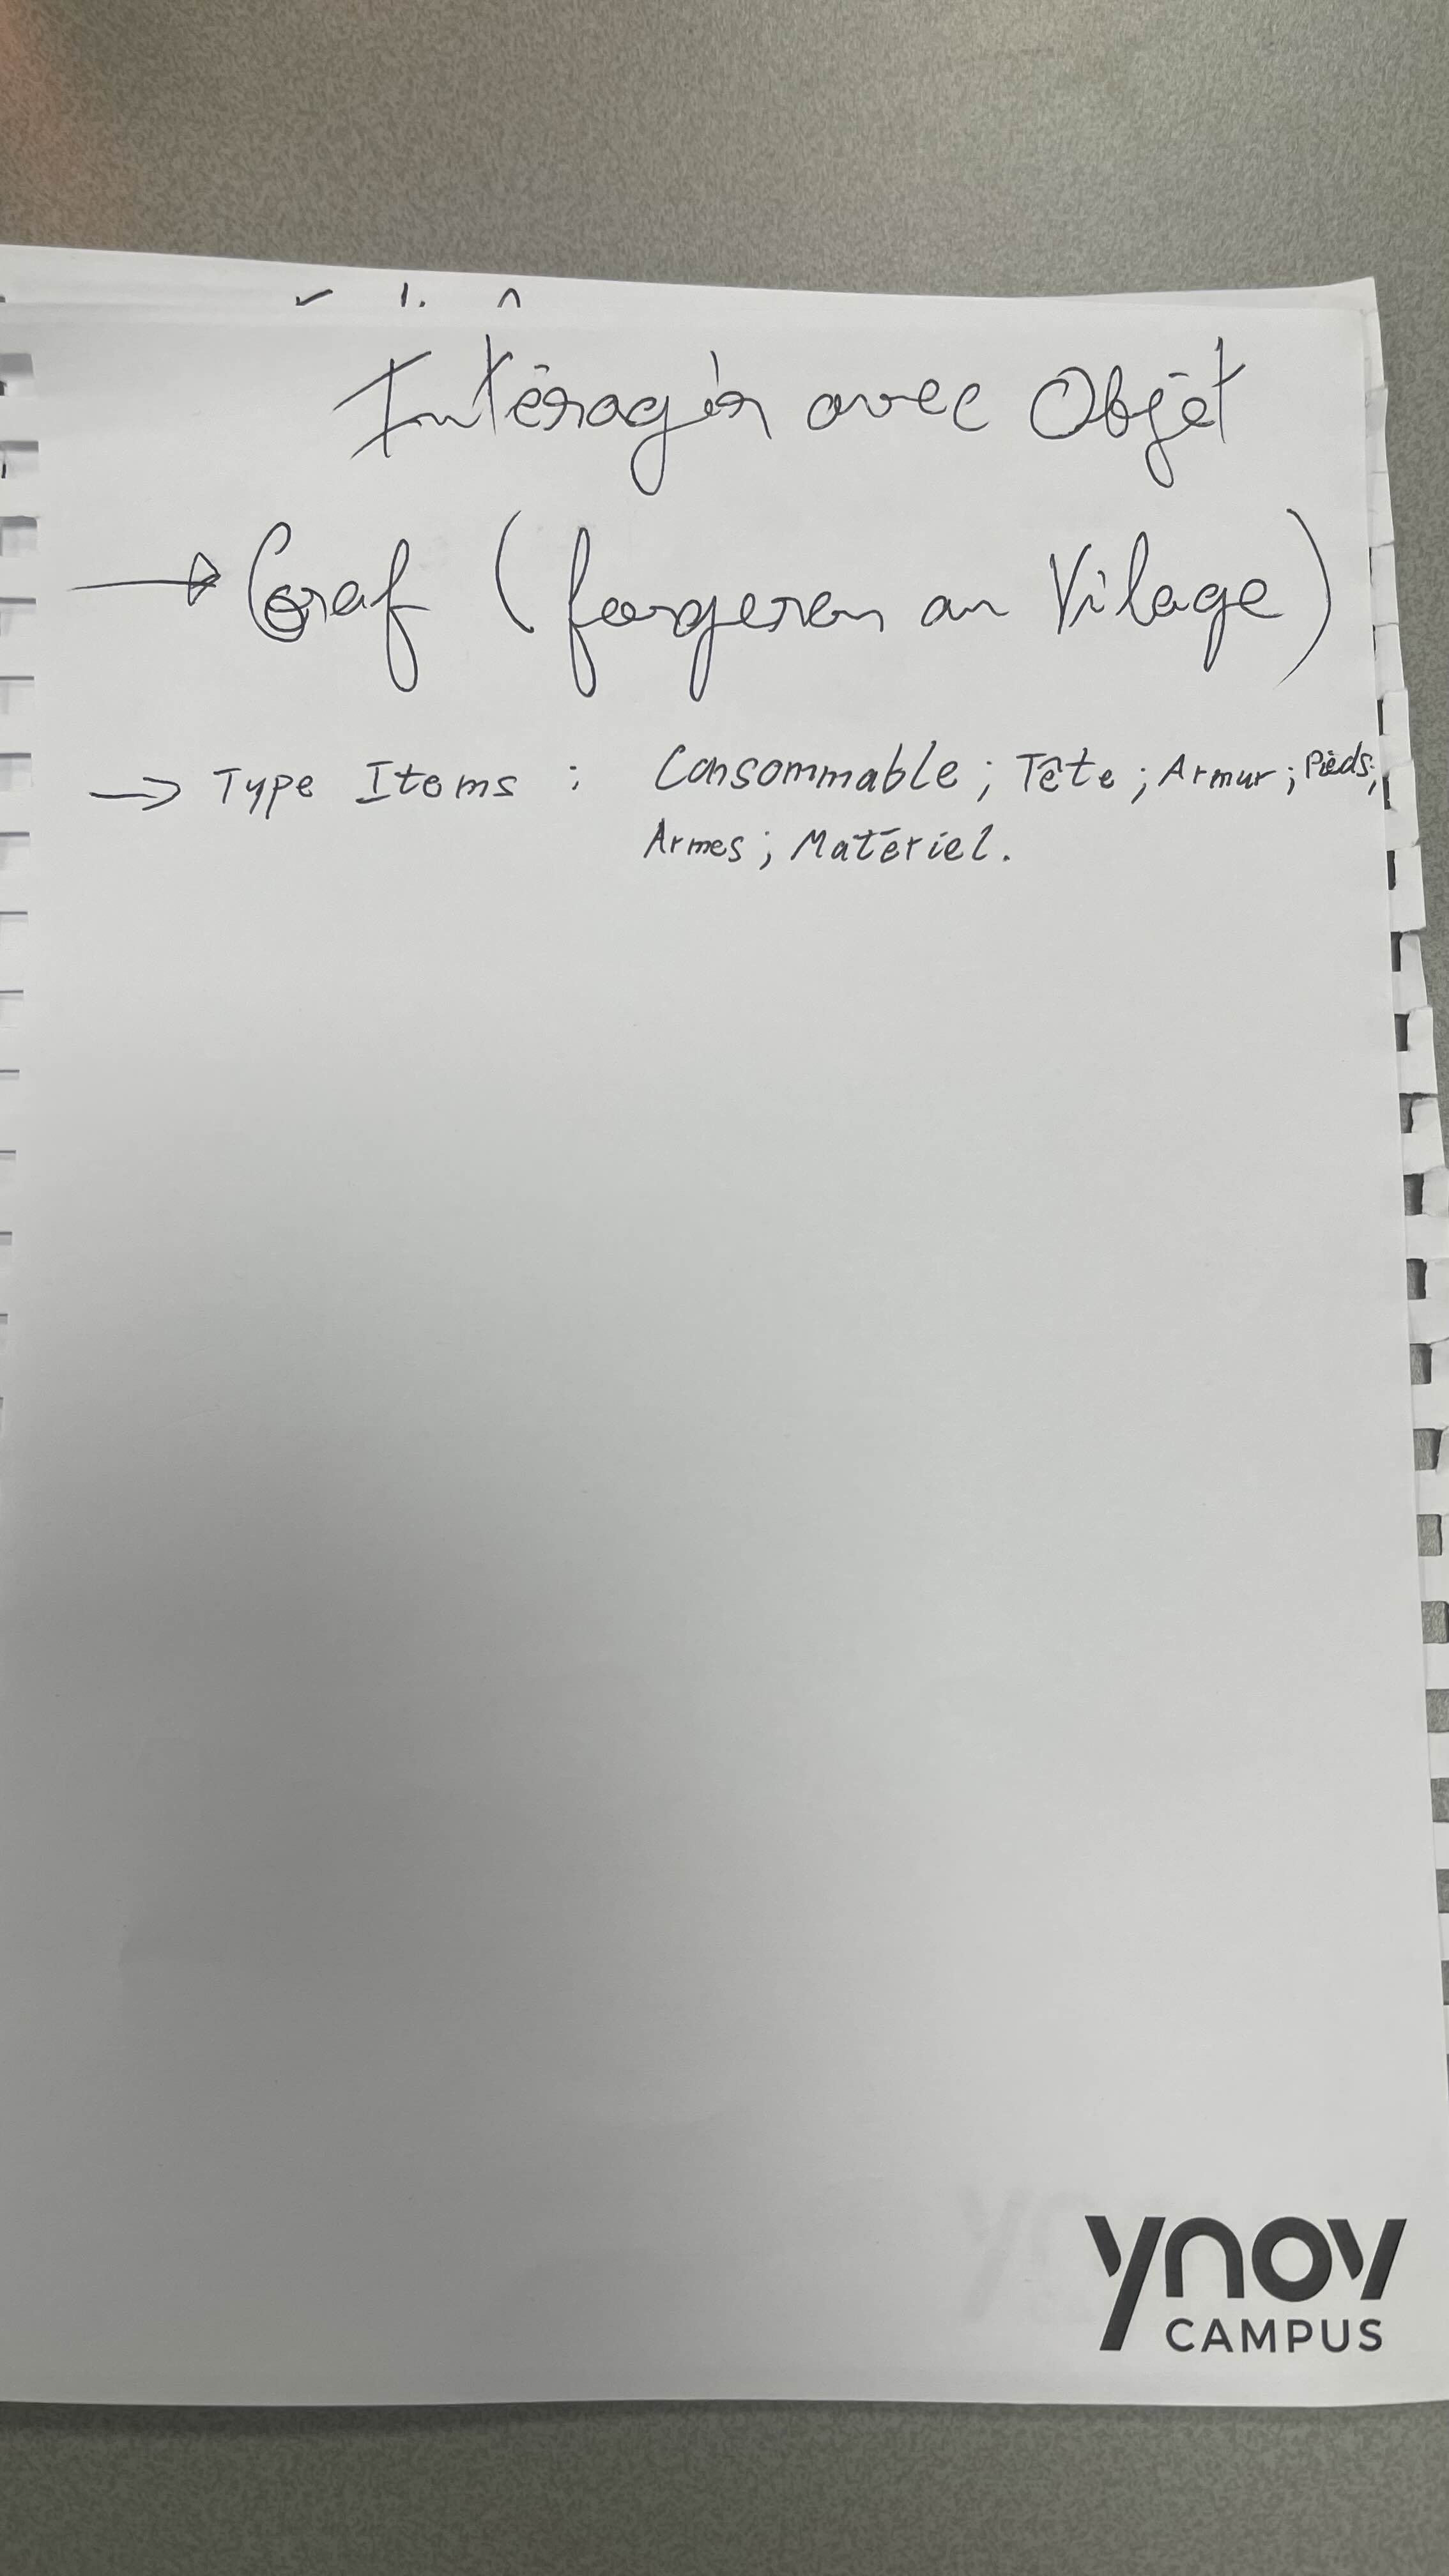 Intéragir avec Objet
→ Craf (forgeron au Vilage)
→ Type Items : Consommable ; Tête ; Armur ; Pieds ;
Armes ; Matériel.
ynov
CAMPUS